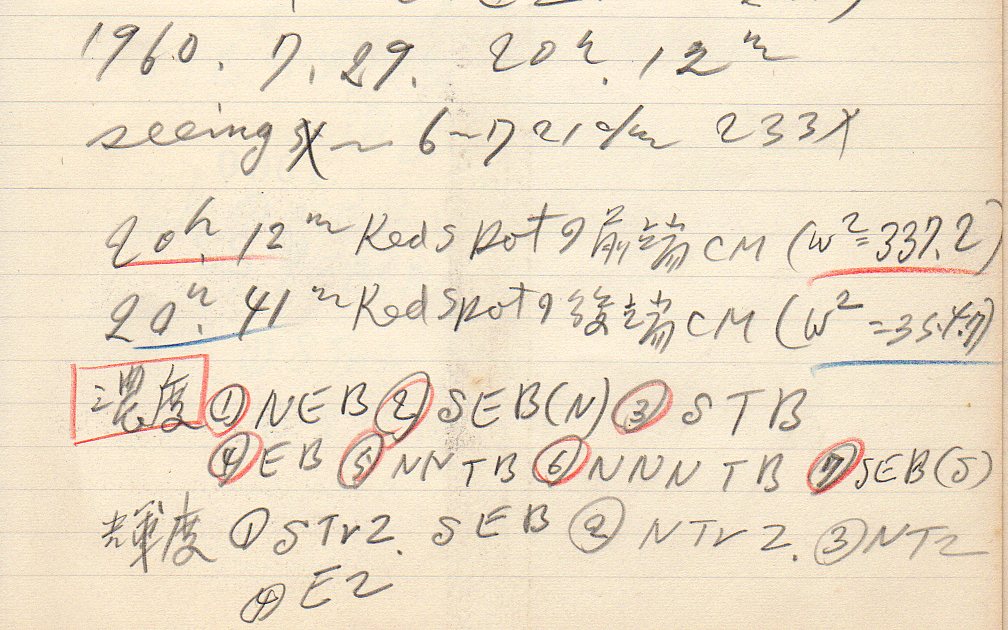 1960. 7. 29. 20h. 12m
seeing ~ 6~7 21cm 233X
20h. 12m Red spotの前端CM (ω²=337.2)
20h. 41m Red spotの後端CM (ω²=354.7)
濃度 ① NEB ② SEB(N) ③ STB
④ EB ⑤ NNTB ⑥ NNNTB ⑦ SEB(S)
輝度 ① STrZ. SEB ② NTrZ. ③ NTZ
④ EZ